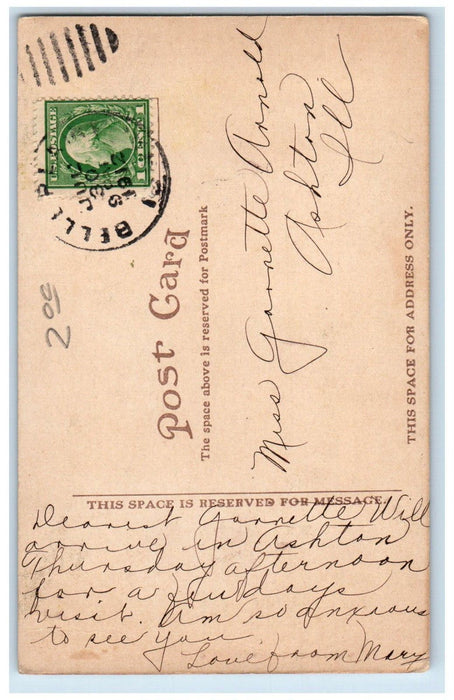 U.S. POSTAGE
1 CENT 1
BELLE PLA
2.00
Post Card
The space above is reserved for Postmark
Miss Garnette Arnold
Ashton
Ill
THIS SPACE FOR ADDRESS ONLY.
THIS SPACE IS RESERVED FOR MESSAGE.
Dearest Garnette Will
arrive in Ashton
Thursday afternoon
for a few days
visit. Am so anxious
to see you.
Love from Mary